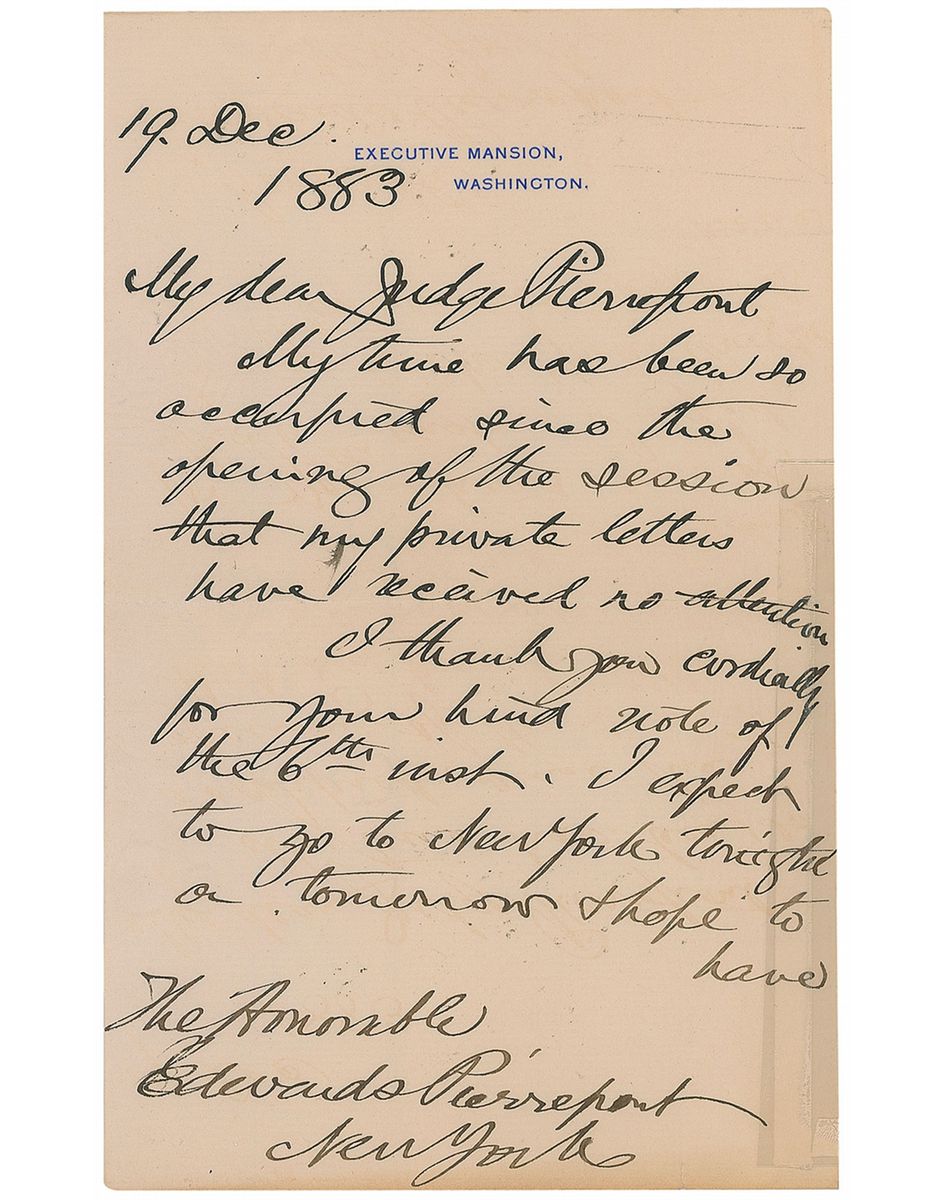 19. Dec.
EXECUTIVE MANSION,
1883
WASHINGTON.
My dear Judge Pierrepont
My time has been so
occupied since the
opening of the session
that my private letters
have received no attention
I thank you cordially
for your kind note of
the 6th inst. I expect
to go to New York tonight
or tomorrow & hope to
have
The Honorable
Edwards Pierrepont
New York